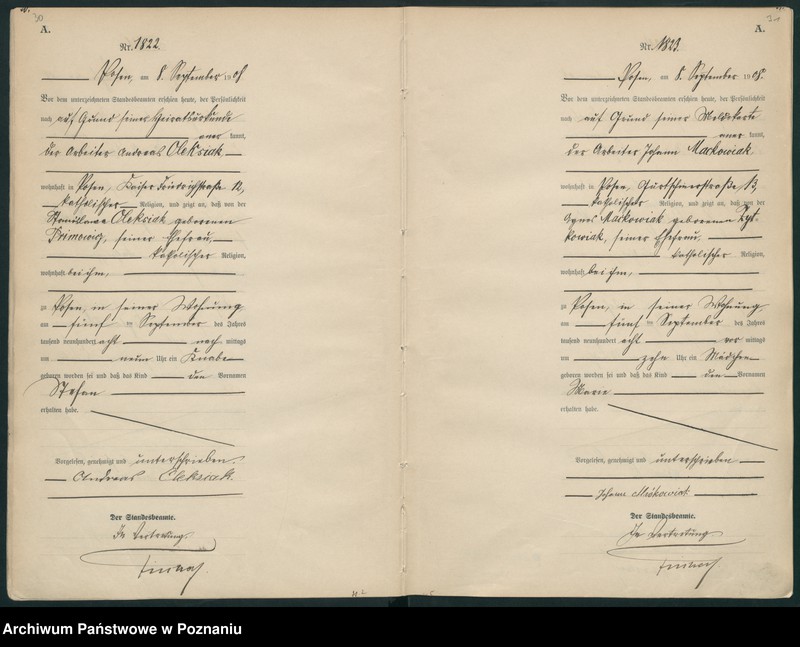 A.
Nr. 1822.
Posen, am 8. September 1908
Vor dem unterzeichneten Standesbeamten erschien heute, der Persönlichkeit
nach auf Grund seiner Heiratsurkunde
aner kannt,
der Arbeiter Andreas Oleksiak
wohnhaft in Posen, Kaiser Friedrichstraße 12,
katholischer Religion, und zeigt an, daß von der
Stanislawa Oleksiak geborenen
seiner Ehefrau,
katholischer Religion,
wohnhaft bei ihm,
zu Posen, in seiner Wohnung
am fünf ten September des Jahres
tausend neunhundert acht nach mittags
um neun Uhr ein Knabe
geboren worden sei und daß das Kind den Vornamen
Stefan
erhalten habe.
Vorgelesen, genehmigt und unterschrieben.
Andreas Oleksiak
Der Standesbeamte.
In Vertretung
A.
Nr. 1823.
Posen, am 8. September 1908.
Vor dem unterzeichneten Standesbeamten erschien heute, der Persönlichkeit
nach auf Grund seiner Meldekarte
aner kannt,
der Arbeiter Johann Mackowiak
wohnhaft in Posen, Gurtschinerstraße 13,
katholischer Religion, und zeigt an, daß von der
Agnes Mackowiak geborenen
kowiak, seiner Ehefrau,
katholischer Religion,
wohnhaft bei ihm,
zu Posen, in seiner Wohnung
am fünf ten September des Jahres
tausend neunhundert acht vor mittags
um zehn Uhr ein Mädchen
geboren worden sei und daß das Kind den Vornamen
Marie
erhalten habe.
Vorgelesen, genehmigt und unterschrieben
Johann
Der Standesbeamte.
In Vertretung
Archiwum Państwowe w Poznaniu